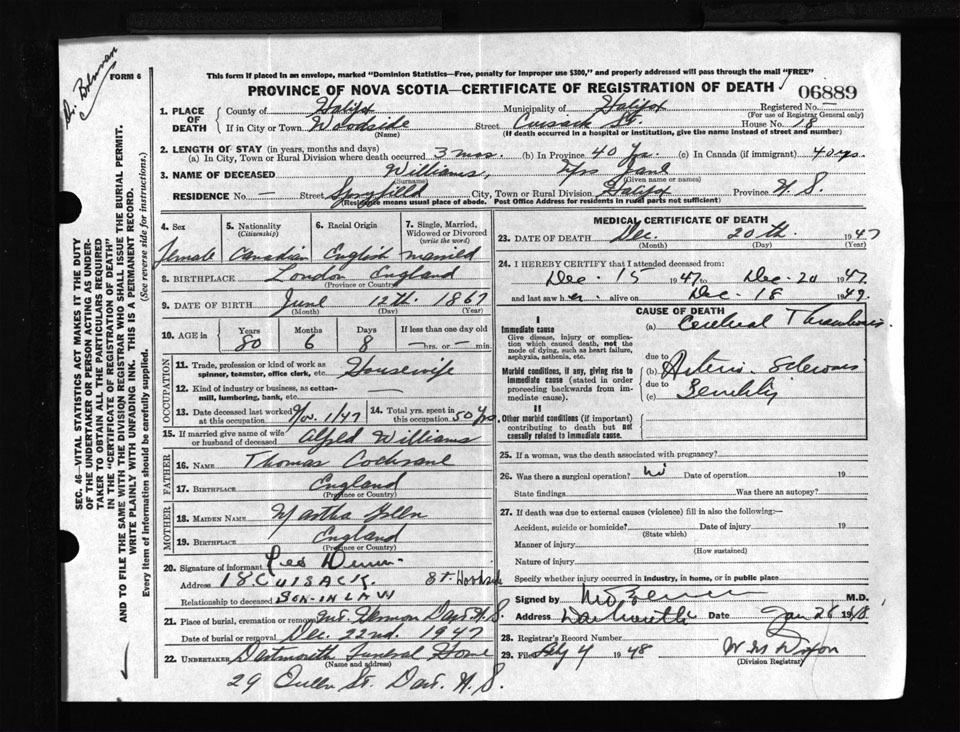 Dr. Brennan
FORM 6
This form if placed in an envelope, marked "Dominion Statistics—Free, penalty for improper use $300," and properly addressed will pass through the mail "FREE"
PROVINCE OF NOVA SCOTIA—CERTIFICATE OF REGISTRATION OF DEATH
06889
SEC. 46—VITAL STATISTICS ACT MAKES IT THE DUTY
OF THE UNDERTAKER OR PERSON ACTING AS UNDER-
TAKER TO OBTAIN ALL THE PARTICULARS REQUIRED
IN THE "CERTIFICATE OF REGISTRATION OF DEATH"
AND TO FILE THE SAME WITH THE DIVISION REGISTRAR WHO SHALL ISSUE THE BURIAL PERMIT.
WRITE PLAINLY WITH UNFADING INK. THIS IS A PERMANENT RECORD.
Every item of information should be carefully supplied. (See reverse side for instructions.)
1. PLACE OF DEATH
County of Halifax Municipality of Halifax Registered No. —
(For use of Registrar General only)
If in City or Town Woodside Street Cuisack St. House No. 18
(Name) (If death occurred in a hospital or institution, give the name instead of street and number)
2. LENGTH OF STAY (in years, months and days)
(a) In City, Town or Rural Division where death occurred 3 mos. (b) In Province 40 Yrs. (c) In Canada (if immigrant) 40 yrs.
3. NAME OF DECEASED Williams, Mrs Jane
(Surname) (Given name or names)
RESIDENCE No. — Street Spryfield City, Town or Rural Division Halifax Province N. S.
(Residence means usual place of abode. Post Office Address for residents in rural parts not sufficient)
4. Sex 5. Nationality (Citizenship) 6. Racial Origin 7. Single, Married, Widowed or Divorced (write the word)
Female Canadian English married
8. BIRTHPLACE London England
(Province or Country)
9. DATE OF BIRTH June 12th 1867
(Month) (Day) (Year)
10. AGE in Years Months Days If less than one day old
80 6 8 —hrs. or —min.
OCCUPATION
11. Trade, profession or kind of work as spinner, teamster, office clerk, etc. Housewife
12. Kind of industry or business, as cotton-mill, lumbering, bank, etc.
13. Date deceased last worked at this occupation Nov. 1/47 14. Total yrs. spent in this occupation 50 Yrs.
15. If married give name of wife or husband of deceased Alfred Williams
FATHER
16. NAME Thomas Cochrane
17. BIRTHPLACE England
(Province or Country)
MOTHER
18. MAIDEN NAME Martha
19. BIRTHPLACE England
(Province or Country)
20. Signature of informant
Address 18 CUISACK. ST. Woodside
Relationship to deceased SON-IN LAW
21. Place of burial, cremation or removal Mt. Hermon Dart. N.S.
Date of burial or removal Dec. 22nd. 1947
22. UNDERTAKER Dartmouth Funeral Home
(Name and address)
29 Queen St. Dart. N. S.
MEDICAL CERTIFICATE OF DEATH
23. DATE OF DEATH Dec. 20th 1947
(Month) (Day) (Year)
24. I HEREBY CERTIFY that I attended deceased from:
Dec 15 1947 to Dec. 20 1947
and last saw her alive on Dec. 18 1947.
CAUSE OF DEATH
I
Immediate cause
Give disease, injury or complication which caused death, not the mode of dying, such as heart failure, asphyxia, asthenia, etc.
(a) Cerebral Thrombosis
due to
Morbid conditions, if any, giving rise to immediate cause (stated in order proceeding backwards from immediate cause).
(b) Arterio Sclerosis
due to
(c) Senility
II
Other morbid conditions (if important) contributing to death but not causally related to immediate cause.
25. If a woman, was the death associated with pregnancy?
26. Was there a surgical operation? no Date of operation 19
State findings Was there an autopsy?
27. If death was due to external causes (violence) fill in also the following:—
Accident, suicide or homicide? Date of injury 19
(State which)
Manner of injury
(How sustained)
Nature of injury
Specify whether injury occurred in industry, in home, or in public place
Signed by M.D.
Address Dartmouth Date Jan 26 1948
28. Registrar's Record Number
29. Filed Feby 4 1948 W. M. Dixon
(Division Registrar)